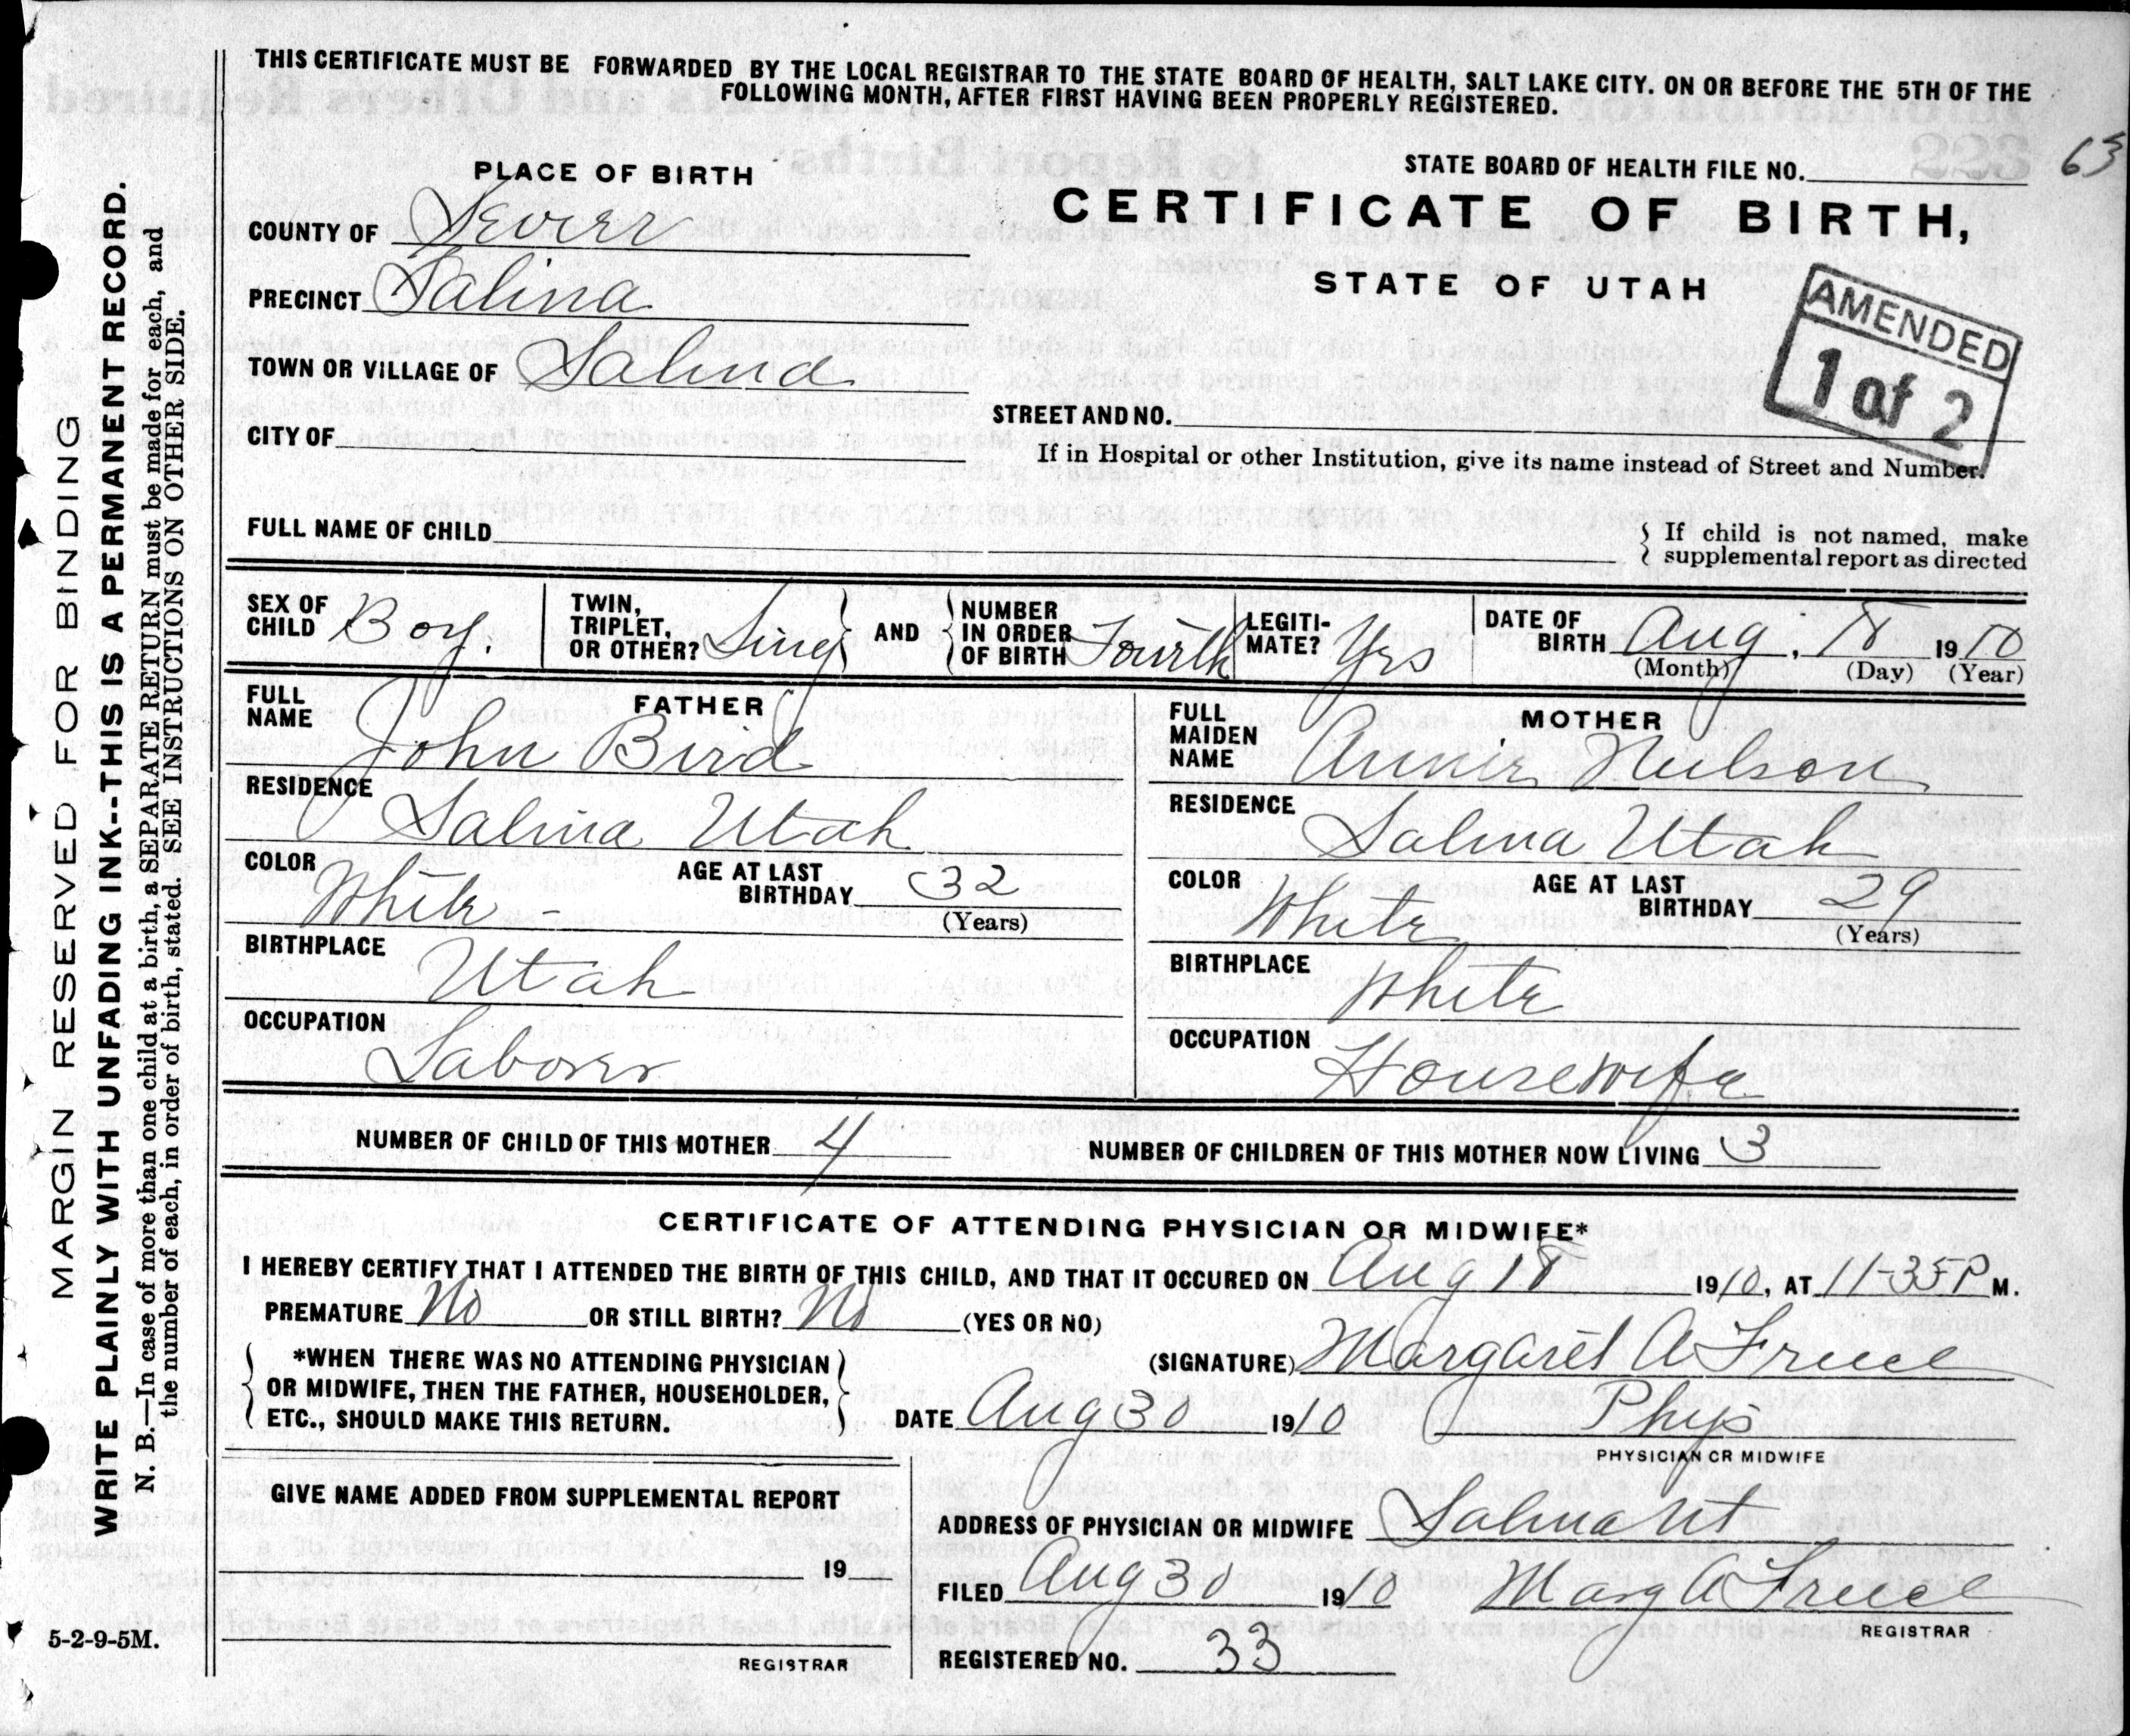 THIS CERTIFICATE MUST BE FORWARDED BY THE LOCAL REGISTRAR TO THE STATE BOARD OF HEALTH, SALT LAKE CITY. ON OR BEFORE THE 5TH OF THE
FOLLOWING MONTH, AFTER FIRST HAVING BEEN PROPERLY REGISTERED.
PLACE OF BIRTH
STATE BOARD OF HEALTH FILE NO. 63
CERTIFICATE OF BIRTH,
STATE OF UTAH
AMENDED
1 of 2
COUNTY OF Sevier
PRECINCT Salina
TOWN OR VILLAGE OF Salina
STREET AND NO.
CITY OF
If in Hospital or other Institution, give its name instead of Street and Number.
FULL NAME OF CHILD
{ If child is not named, make
supplemental report as directed
SEX OF CHILD Boy.
TWIN, TRIPLET, OR OTHER? Sing
AND
NUMBER IN ORDER OF BIRTH Fourth
LEGITI-MATE? Yes
DATE OF BIRTH Aug. 18 1910
(Month) (Day) (Year)
FATHER
FULL NAME John Bird
RESIDENCE Salina Utah
COLOR White -
AGE AT LAST BIRTHDAY 32
(Years)
BIRTHPLACE Utah
OCCUPATION Laborer
MOTHER
FULL MAIDEN NAME Annie Neilson
RESIDENCE Salina Utah
COLOR White
AGE AT LAST BIRTHDAY 29
(Years)
BIRTHPLACE White
OCCUPATION Housewife
NUMBER OF CHILD OF THIS MOTHER 4
NUMBER OF CHILDREN OF THIS MOTHER NOW LIVING 3
CERTIFICATE OF ATTENDING PHYSICIAN OR MIDWIFE*
I HEREBY CERTIFY THAT I ATTENDED THE BIRTH OF THIS CHILD, AND THAT IT OCCURED ON Aug 18 1910, AT 11-35 P M.
PREMATURE No OR STILL BIRTH? No (YES OR NO)
*WHEN THERE WAS NO ATTENDING PHYSICIAN
OR MIDWIFE, THEN THE FATHER, HOUSEHOLDER,
ETC., SHOULD MAKE THIS RETURN.
(SIGNATURE) Margaret A Freece
DATE Aug 30 1910 Phys
PHYSICIAN OR MIDWIFE
GIVE NAME ADDED FROM SUPPLEMENTAL REPORT
19
REGISTRAR
ADDRESS OF PHYSICIAN OR MIDWIFE Salina Ut
FILED Aug 30 1910 Marg A Freece
REGISTRAR
REGISTERED NO. 33
MARGIN RESERVED FOR BINDING
WRITE PLAINLY WITH UNFADING INK--THIS IS A PERMANENT RECORD.
N. B.—In case of more than one child at a birth, a SEPARATE RETURN must be made for each, and
the number of each, in order of birth, stated. SEE INSTRUCTIONS ON OTHER SIDE.
5-2-9-5M.